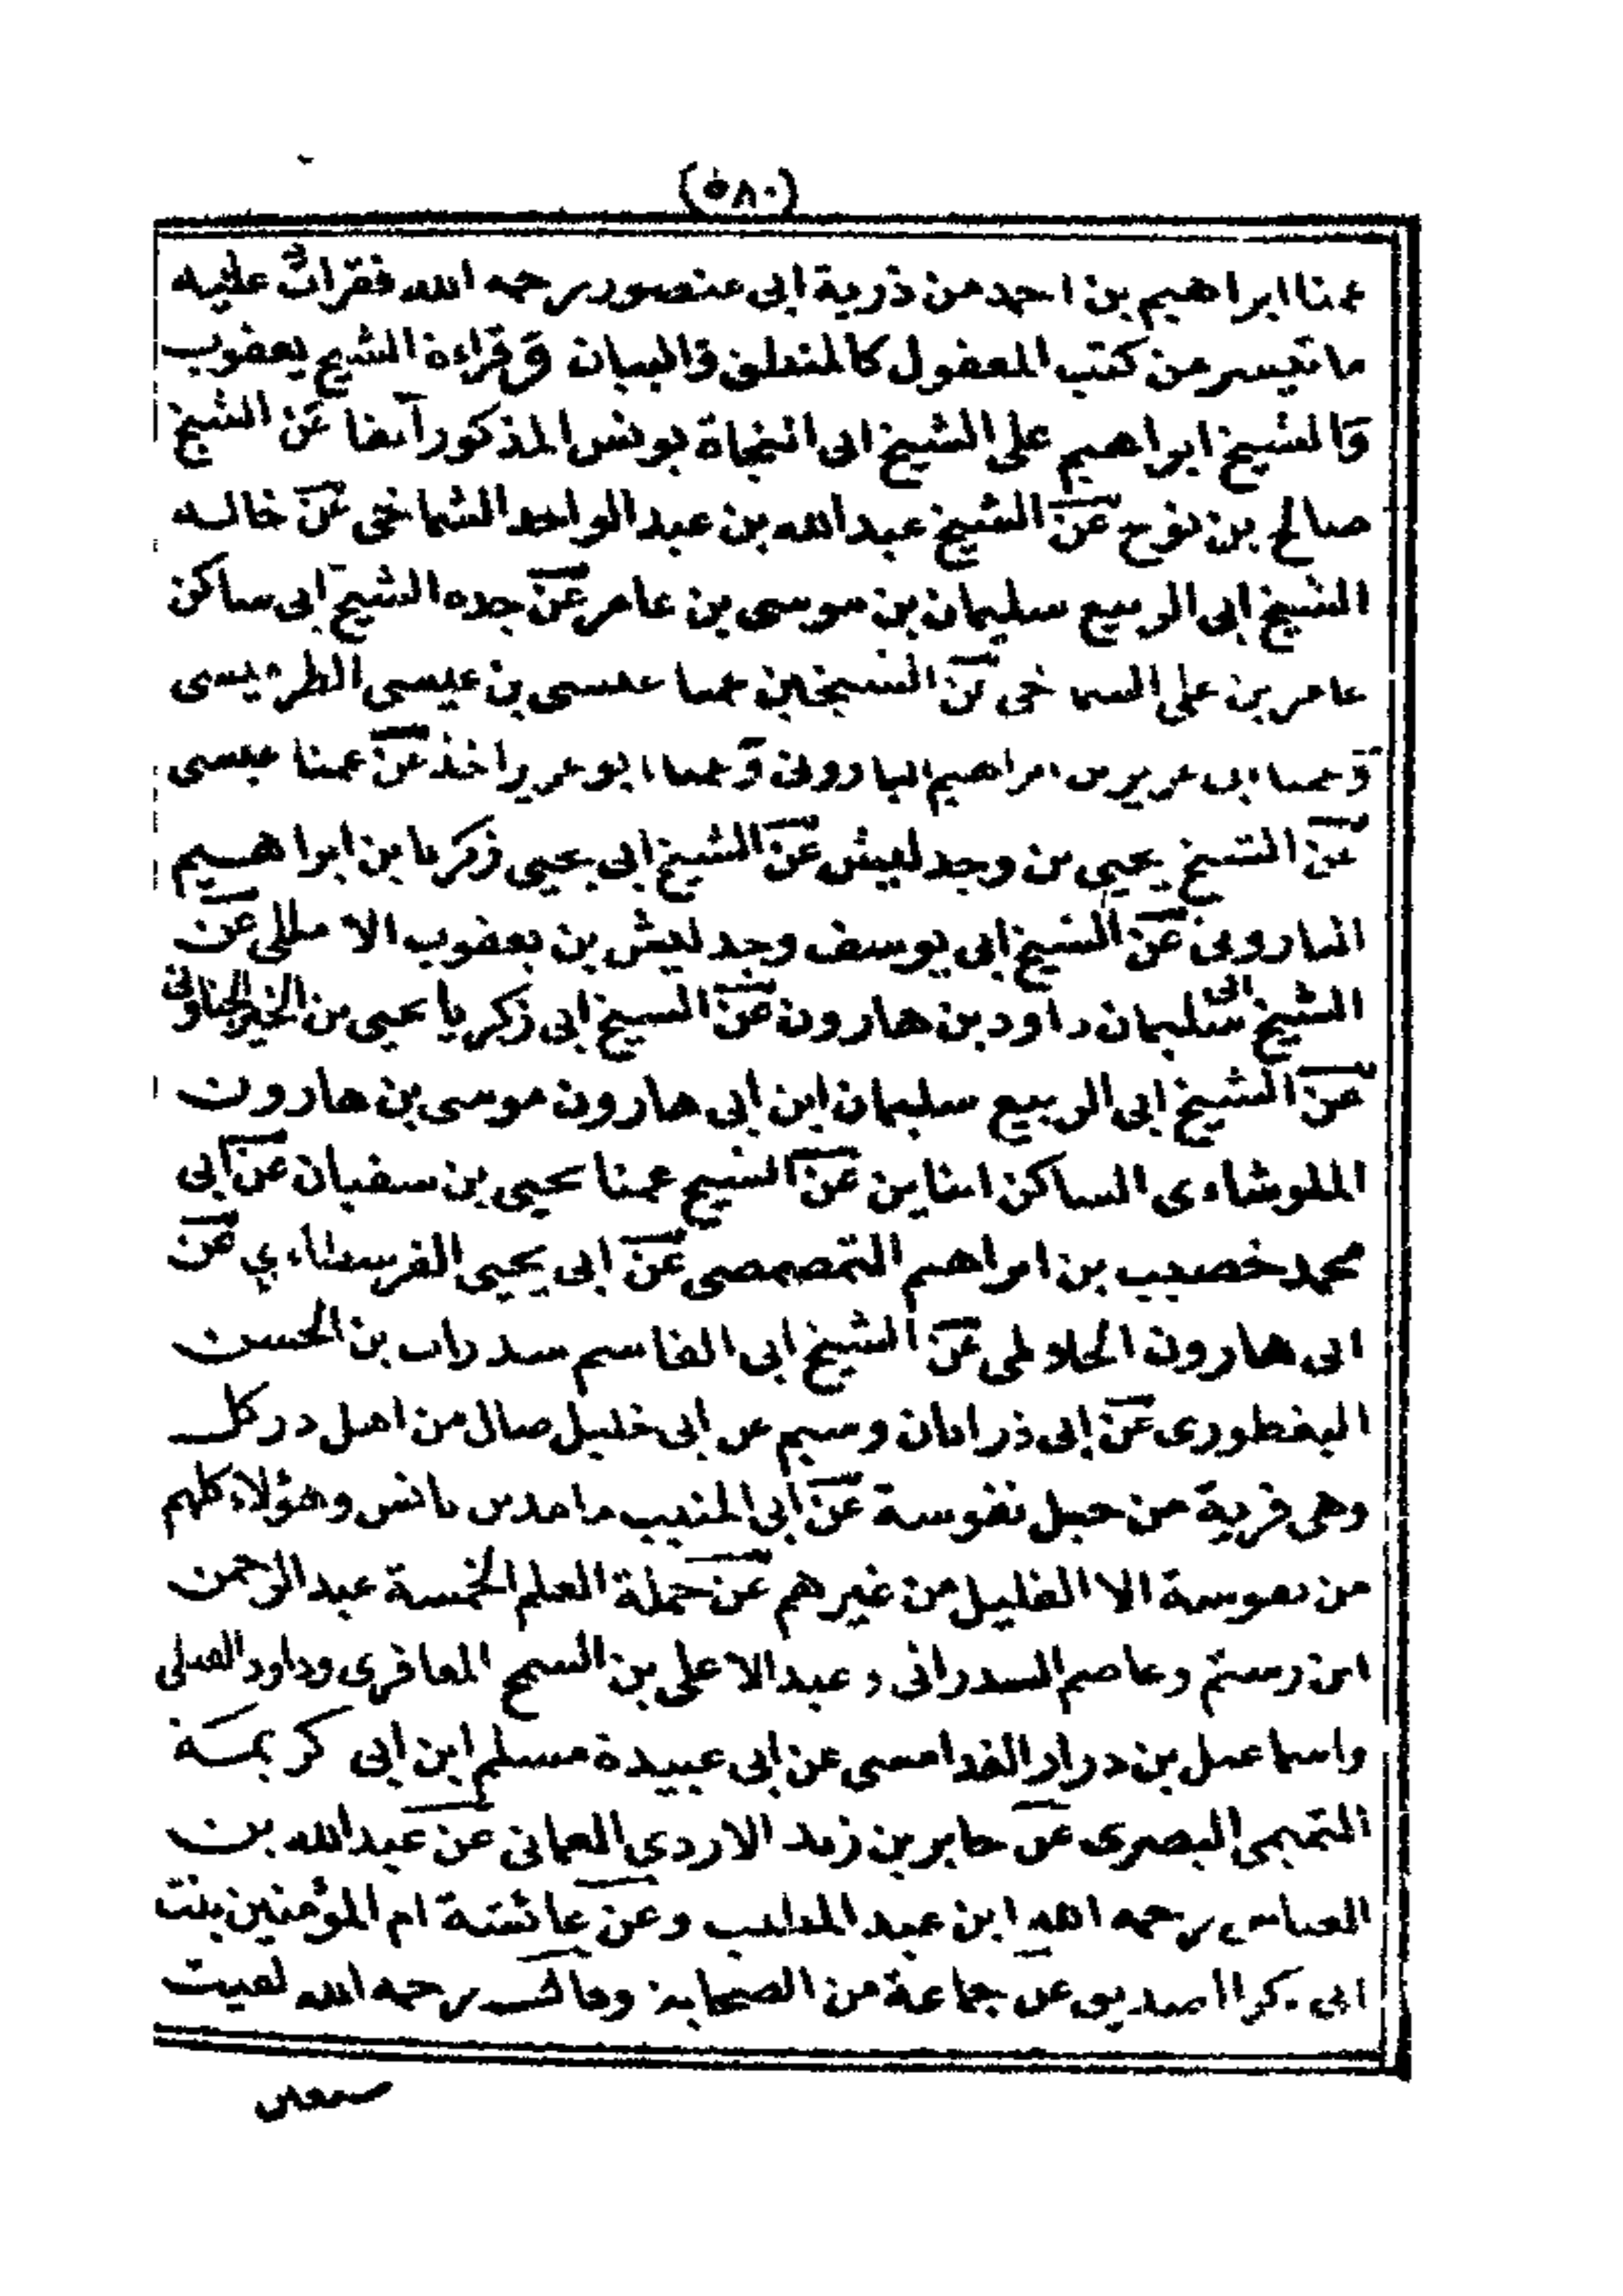 (٥٨٠)
عمنا ابراهيم بن احمد من ذرية ابى منصور رحمه الله فقرات عليه
ما تيسر من كتب المعقول كالمنطق والبيان وقراءة الشيخ يعقوب
والشيخ ابراهيم على الشيخ ابى النجاة يونس المذكور آنفا عن الشيخ
صالح بن نوح عن الشيخ عبدالله بن عبد الواحد الشماخى عن خاله
الشيخ ابى الربيع سليمان بن موسى بن عامر عن جده الشيخ ابى ساكن
عامر بن على الشماخى عن الشيخين عمنا عيسى بن عيسى الطرميسى
وعمنا ابى عزيز بن ابراهيم البارونى وعمنا ابو عزيز اخذ عن عمنا عيسى
عن الشيخ يحيى بن وجدليش عن الشيخ ابى يحيى زكريا بن ابراهيم
البارونى عن الشيخ ابى يوسف وجدليش بن يعقوب الامللى عن
الشيخ ابى سليمان داود بن هارون عن الشيخ ابى زكريا يحيى بن الخير الجناونى
عن الشيخ ابى الربيع سليمان ابن ابى هارون موسى بن هارون
الملوشاءى الساكن ابناين عن الشيخ عمنا يحيى بن سفيان عن ابى
محمد خصيب بن ابراهيم التمصمصى عن ابى يحيى الفرسطاءي عن
ابى هارون الجلاولمى عن الشيخ ابى القاسم سدرات بن الحسن
البغطورى عن ابى ذر ابان وسيم عن ابى خليل صال من اهل دركل
وهى قرية من جبل نفوسة عن ابى المنيب مامد بن يانس وهؤلاء كلهم
من نفوسة الا القليل من غيرهم عن حملة العلم الخمسة عبد الرحمن
ابن رستم وعاصم السدراتى وعبد الاعلى بن السمح المعافرى وداود القبلى
واسماعيل بن درار الغدامسى عن ابى عبيدة مسلم ابن ابى كريمة
التميمى البصرى عن جابر بن زيد الازدى العمانى عن عبدالله بن
العباس رحمه الله ابن عبد المطلب وعن عائشة ام المؤمنين بنت
ابى بكر الصديق عن جماعة من الصحابة وقال رحمه الله لقيت
سبعين